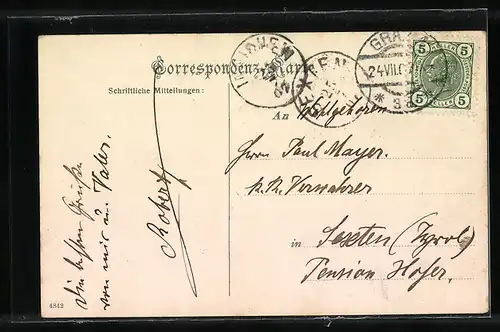 Correspondenz-Karte
Schriftliche Mitteilungen:
An
Wohlgeboren
Herrn Paul Mayer.
k. k. Verwahrer
in Sexten (Tyrol)
Pension Hofer.
Die besten Grüße
von mir u. Vater.
Robert
4842
GRAZ
24.VII.0
5 5
HELLER
5 5
INNICHEN